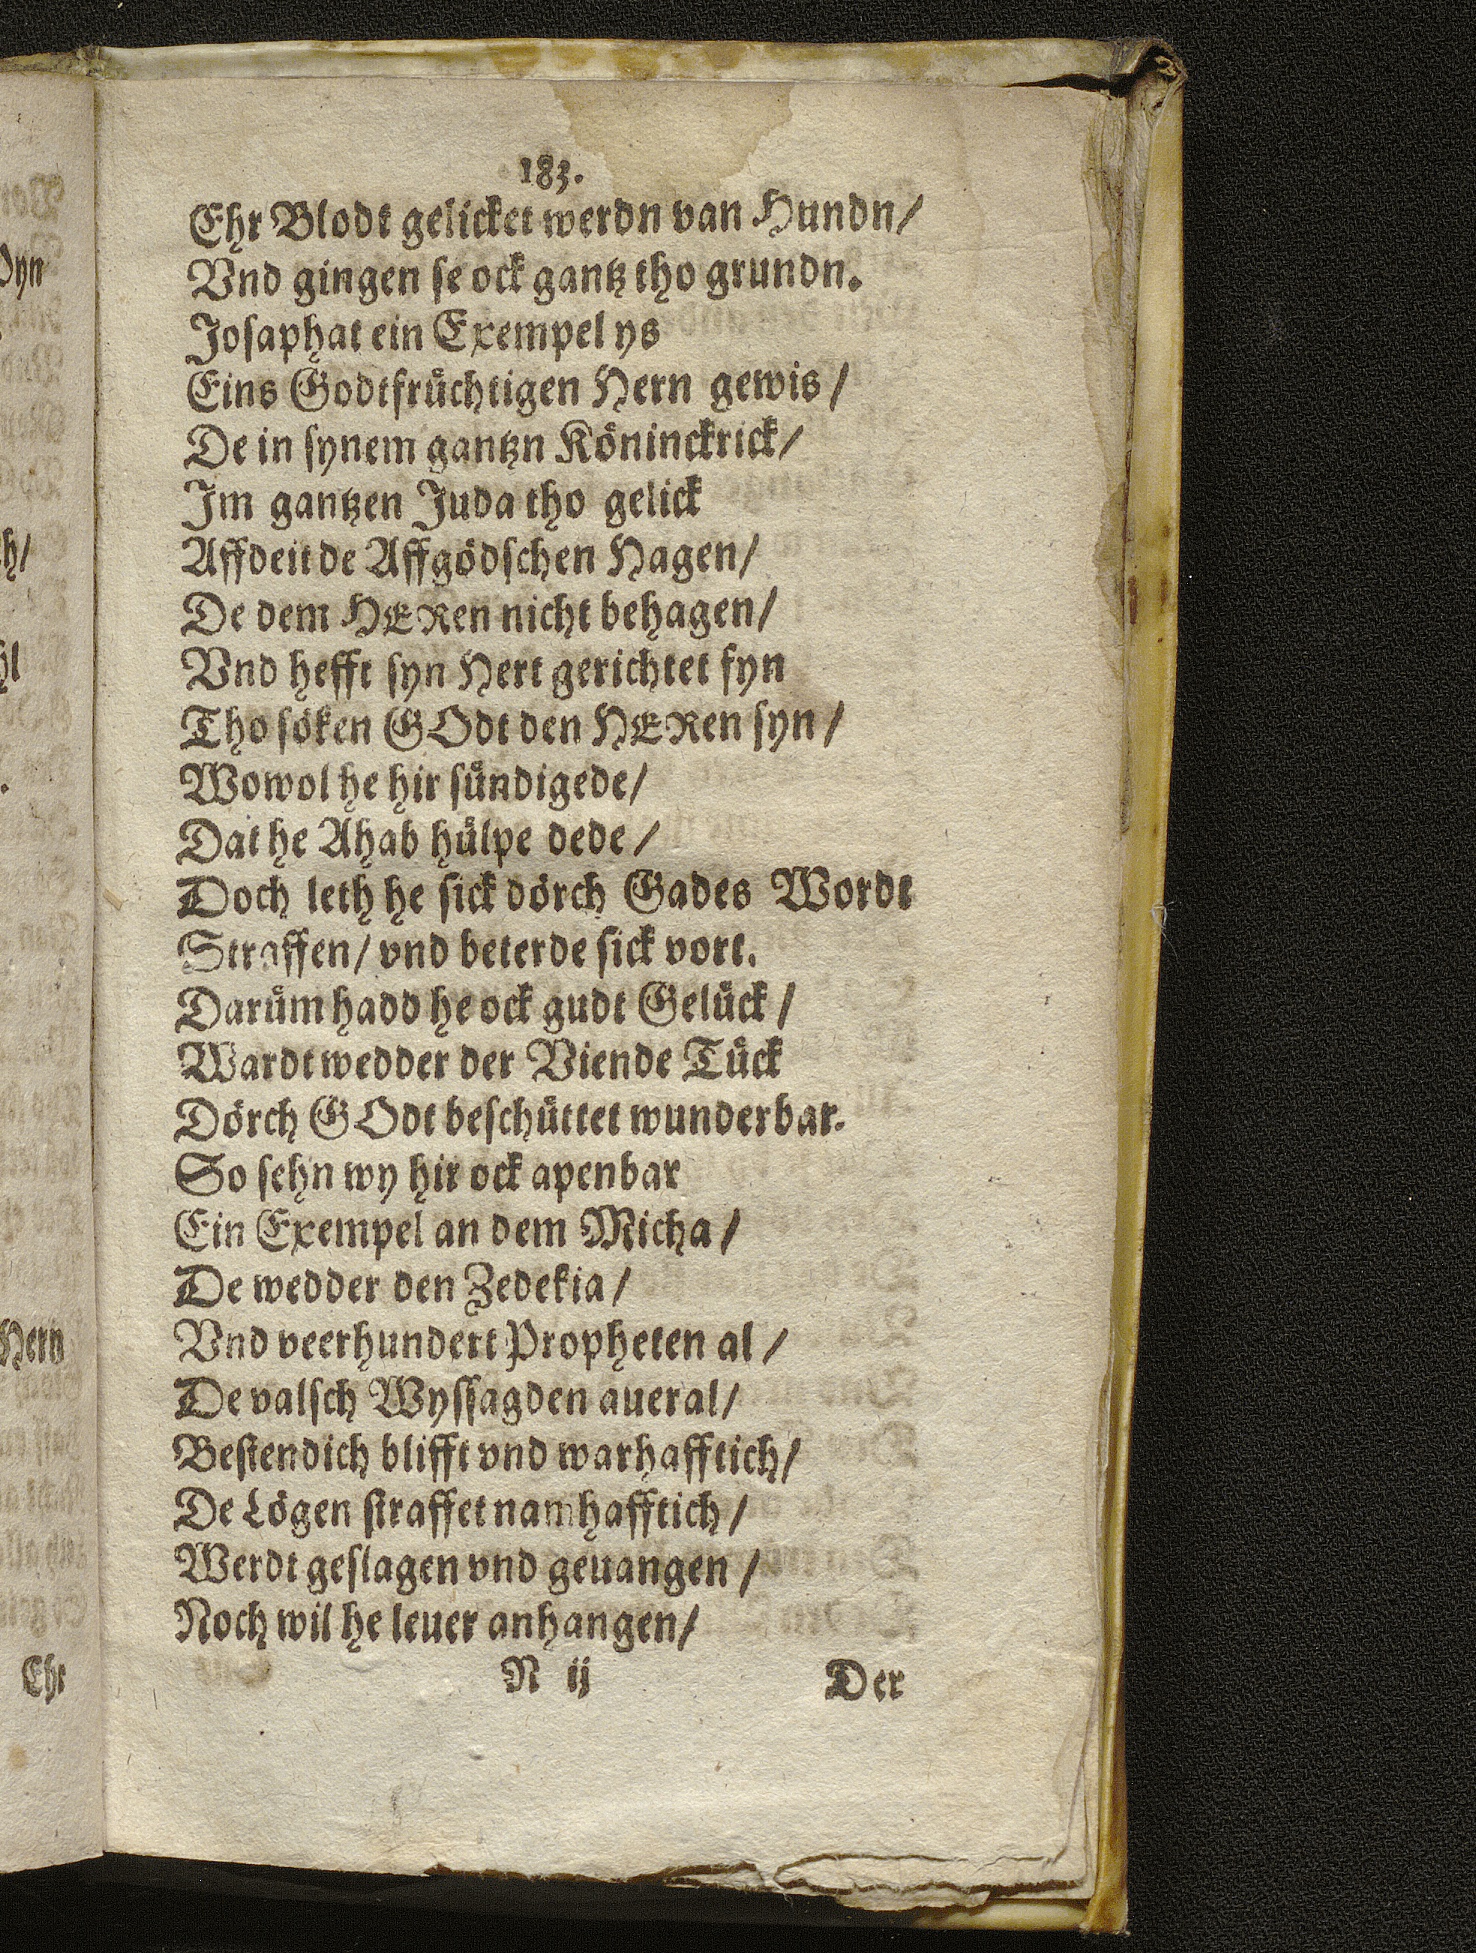 183.
Ehr Blodt gelicket werdn van Hundn/
Vnd gingen se ock gantz tho grundn.
Josaphat ein Exempel ys
Eins Godtfrüchtigen Hern gewis/
De in synem gantzn Köninckrick/
Im gantzen Juda tho gelick
Affdeit de Affgödschen Hagen/
De dem HERen nicht behagen/
Vnd hefft syn Hert gerichtet fyn
Tho söken GOdt den HERen syn/
Wowol he hir sündigede/
Dat he Ahab hülpe dede/
Doch leth he sick dörch Gades Wordt
Straffen/ vnd beterde sick vort.
Darüm hadd he ock gudt Gelück/
Wardt wedder der Viende Tück
Dörch GOdt beschüttet wunderbar.
So sehn wy hir ock apenbar
Ein Exempel an dem Micha/
De wedder den Zedekia/
Vnd veerhundert Propheten al/
De valsch Wyssagden aueral/
Bestendich blifft vnd warhafftich/
De Lögen straffet namhafftich/
Werdt geslagen vnd geuangen/
Noch wil he leuer anhangen/
N ij Der
Hern
Ehr